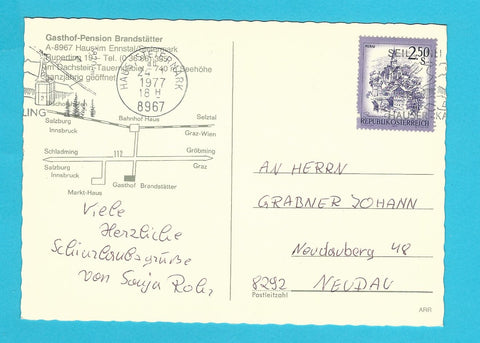 Gasthof-Pension Brandstätter
A-8967 Haus im Ennstal/Steiermark
Ruperting 19 - Tel. (0 36 86)
am Dachstein-Tauerngebiet - 740 m Seehöhe
ganzjährig geöffnet
HAUS STEIERMARK
24
1977
18 H
8967
2.50
S
REPUBLIK ÖSTERREICH
SEIL
HAUS
LING
Salzburg
Innsbruck
Bahnhof Haus
Selztal
Graz-Wien
Schladming
112
Gröbming
Salzburg
Innsbruck
Graz
Markt-Haus
Gasthof Brandstätter
Viele
Herzliche
Schiurlaubsgrüße
von Sonja Rohr
AN HERRN
GRABNER JOHANN
Neudauberg 48
8292 NEUDAU
Postleitzahl
ARR